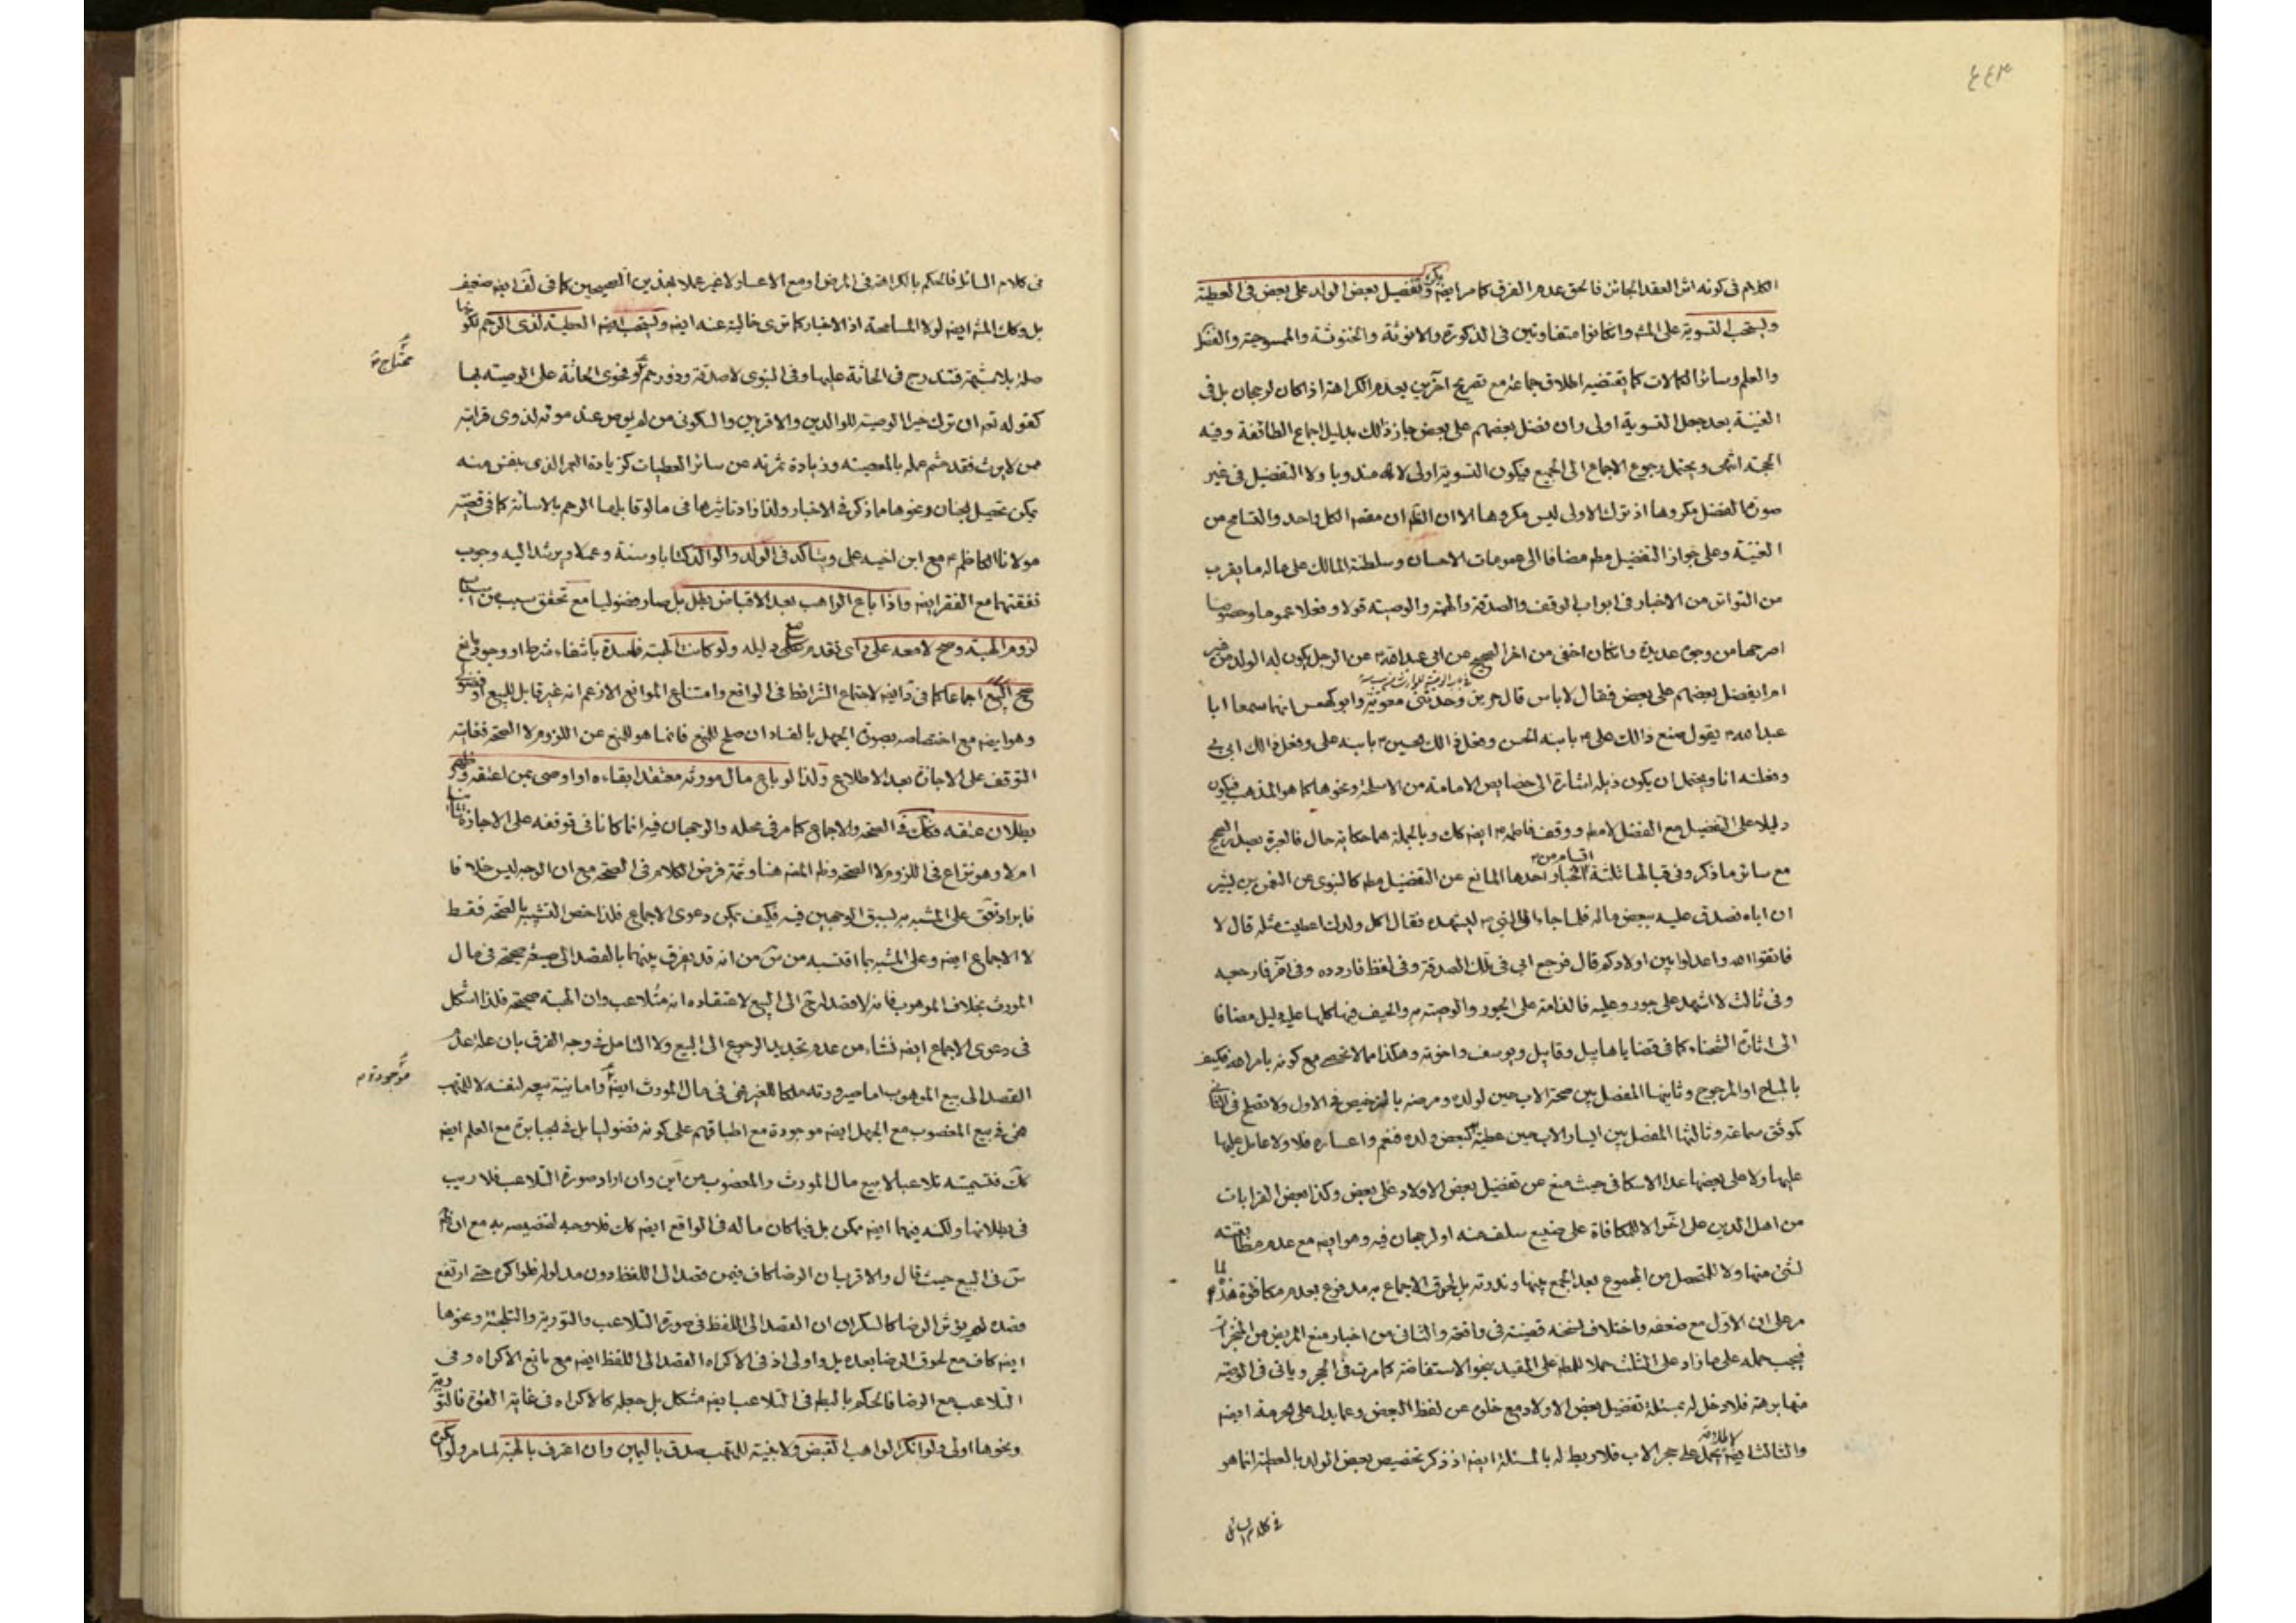 ٤٤٣
الكلام فى كونه اثر العقد الجائز فالحق عدم الفرق كما مر ايضه ويكره تفضيل بعض الولد على بعض فى العطية
ويستحب التسوية على المشه وان كانوا متفاوتين فى الذكورة والانوثة والخنوثة والممسوحية والفضل
والعلم وسائر الكمالات كما يقتضيه اطلاق جماعة مع تصريح آخرين بعدم الكراهة اذا كان لرجحان بل فى
الغنية بعد جعل التسوية اولى وان فضل بعضهم على بعض جاز ذالك بدليل اجماع الطائفة وفيه
الحجة انتهى ويحتمل رجوع الاجماع الى الجميع فيكون التسوية اولى لانه مندوبا ولا التفضيل فى غير
صورة الفضل مكروها اذ ترك الاولى ليس مكروها الا ان الظم ان مقصد الكل واحد والتسامح من
الغنية وعلى جواز التفضيل مطم مضافا الى عمومات الاحسان وسلطنة المالك على ماله ما يقرب
من التواتر من الاخبار فى ابواب الوقف والصدقة والهبة والوصية قولا وفعلا عموما وخصوصا
اصرحها من وجوه عديدة وان كان اخفى من اخر الصحيح عن ابى عبد الله ع عن الرجل يكون له الولد من غير
ام ايفضل بعضهم على بعض فقال لا باس قال حريز وحدثنى معوية وابو كهمس انهما سمعا ابا
عبد الله ع يقول صنع ذالك على ع بابنه الحسن وفعل ذالك الحسين ع بابنه على وفعل ذالك ابى بى
وفعلته انا ويحتمل ان يكون ذيله اشارة الى خصايص الامامة من الاسلحة ونحوها كما هو المذهب فيكون
دليلا على التفضيل مع الفضل لا مطم ووقف فاطمة ع ايضه كك وبالجملة هما حكاية حال فالعبرة بصدر الصحيح
مع سائر ما ذكر وفى قبالها ثلثة اقسام من الاخبار احدها المانع عن التفضيل مطم كالنبوى عن النعمن بن بشير
ان اباه تصدق عليه ببعض ماله فلما جاء الى النبى ص ليشهده فقال اكل ولدك اعطيت مثله قال لا
فاتقوا الله واعدلوا بين اولادكم قال فرجع ابى فى تلك الصدقة وفى لفظ فاردده وفى آخر فارجعه
وفى ثالث لا اشهد على جور وعليه فالذامة على الجور والوصية به والحيف فيها كلها عليه دليل مضافا
الى اثارة الشحناء كما فى قضايا هابيل وقابيل ويوسف واخوته وهكذا مما لا تحصى مع كونه بامر الله فكيف
بالمباح او المرجوح وثانيها المفصل بين صحة الاب حين لولده ومرضه بالترخيص فى الاول ولا تصلح فى الثانى
كموثق سماعة وثالثها المفصل بين ايسار الاب حين عطيته لبعض ولده فنعم واعساره فلا ولا عامل عليها
عليها ولا على بعضها عدا الاسكافى حيث منع عن تفضيل بعض الاولاد على بعض وكذا بعض القرابات
من اهل الدين على آخر الا للمكافاة على صنيع سلف منه او لرجحان فيه وهو ايضه مع عدم مطابقته
لشئ منها ولا للمتحصل من المجموع بعد الجمع بينها وندرته بل لحوق الاجماع به مدفوع بعدم مكافوة هذه لما
مر على ان الاول مع ضعفه واختلاف نسخه قضية فى واقعة والثانى من اخبار منع المريض من المنجزات
فيجب حمله على ما زاد على الثلث حملا للمطم على المقيد بنحو الاستفاضة كما مرت فى الحجر وياتى فى الوصية
منها برهة فلا دخل له بمسئلة تفضيل بعض الاولاد مع خلوه عن لفظ البعض وعما يدل على الحرمة ايضه
والثالث ايضه لاطلاقه يحمل على حجر الاب فلا ربط له بالمسئلة ايضه اذ ذكر تخصيص بعض الولد بالعطية انما هو
فى كلام السائل
فى كلام السائل فالحكم بالكراهة فى المرض او مع الاعسار لا غير عملا بهذين الصحيحين كما فى لف ايضه ضعيف
بل وكك المشه ايضه لولا المسامحة اذ الاخبار كما ترى خالية عنه ايضه ويستحب ايضه العطية لذى الرحم لكونها
صلة بلا شبهة فتندرج فى الحاثة عليها وفى النبوى لا صدقة وذو رحم محتاج ولفحوى الحاثة على الوصية بها
محتاج
كقوله تعه ان ترك خيرا الوصية للوالدين والاقربين والسكونى من لم يوص عند موته لذوى قرابته
ممن لا يرث فقد ختم عمله بالمعصية وزيادة ثمرته عن سائر العطيات كزيادة العمر الذى ببعض منه
يمكن تحصيل الجنان ونحوها مما ذكر فى الاخبار ولذا زاد تاثيرها فى ما لو قابلها الرحم بالاساءة كما فى قضية
مولانا الكاظم ع مع ابن اخيه على ويتاكد فى الولد والوالد كتابا وسنة وعملا ويرشد اليه وجوب
نفقتهما مع الفقر ايضه واذا باع الواهب بعد الاقباض بطل بل صار فضوليا مع تحقق سبب من اسباب
لزوم الهبة وصح لا معه على راى تقدم مع دليله ولو كانت الهبة فاسدة بانتفاء شرط او وجود مانع
صح البيع اجماعا كما فى ايضه لاجتماع الشرائط فى الواقع وامتناع الموانع الا زعم انه غير قابل للبيع او فضولى
وهو ايضه مع اختصاصه بصورة الجهل بالفساد ان صلح للمنع فانما هو للمنع عن اللزوم لا الصحة فغايته
التوقف على الاجازة بعد الاطلاع ولذا لو باع مال مورثه معتقدا بقاءه او اوصى بمن اعتقه وظهر
بطلان عتقه فكك فى الصحة والاجماع كما مر فى محله والوجهان فيه انما كانا فى توقفه على الاجازة ثانيا
ام لا وهو نزاع فى اللزوم لا الصحة وظم المصه هنا وثمة فرض الكلام فى الصحة مع ان الوجه ليس خلافا
فايراد على المشبه به لسبق الوجهين فيه فكيف يمكن دعوى الاجماع فلذا خص التشبيه بالصحة فقط
لا الاجماع ايضه وعلى المشبه بما اقتبسه من من انه قد يفرق بينهما بالقصد الى صيغة صحيحة فى مال
المورث بخلاف الموهوب فانه لا قصد له ثم الى البيع لاعتقاده انه متلاعب وان الهبة صحيحة فلذا اشكل
فى دعوى الاجماع ايضه نشاء من عدم تجديد الرجوع الى البيع ولا التامل فى وجه الفرق بان علة عدم
القصد الى بيع الموهوب اما صيرورته ملكا للغير فهى فى مال المورث ايضه موجودة واما نية بيعه لنفسه لا للمتهب
موجودة
فهى فى بيع المغصوب مع الجهل ايضه موجودة مع اطباقهم على كونه فضوليا بل فى الجبابرة مع العلم ايضه
كك فتسميته تلاعبا لا بيع مال المورث والمغصوب من اين وان اراد صورة التلاعب فلا ريب
فى بطلانها ولكنه فيهما ايضه ممكن بل فيما كان ماله فى الواقع ايضه كك فلا وجه لتخصيصه به مع ان ظم
فى البيع حيث قال والاقرب ان الرضا كاف فيمن قصد الى اللفظ دون مدلوله فلو اكره حتى ارتفع
قصده لم يؤثر الرضا كالسكران ان القصد الى اللفظ فى صورة التلاعب والتورية والتلجئة ونحوها
ايضه كاف مع لحوق الرضا بعده بل واولى اذ فى الاكراه القصد الى اللفظ ايضه مع مانع الاكراه وفى
التلاعب مع الرضا فالحكم بالبطم فى التلاعب ايضه مشكل بل جعله كالاكراه فى غاية القوة فالتورية
ونحوها اولى ولو انكر الواهب القبض ولا بينة للمتهب صدق باليمين وان اعترف بالهبة لما مر ولو انكره